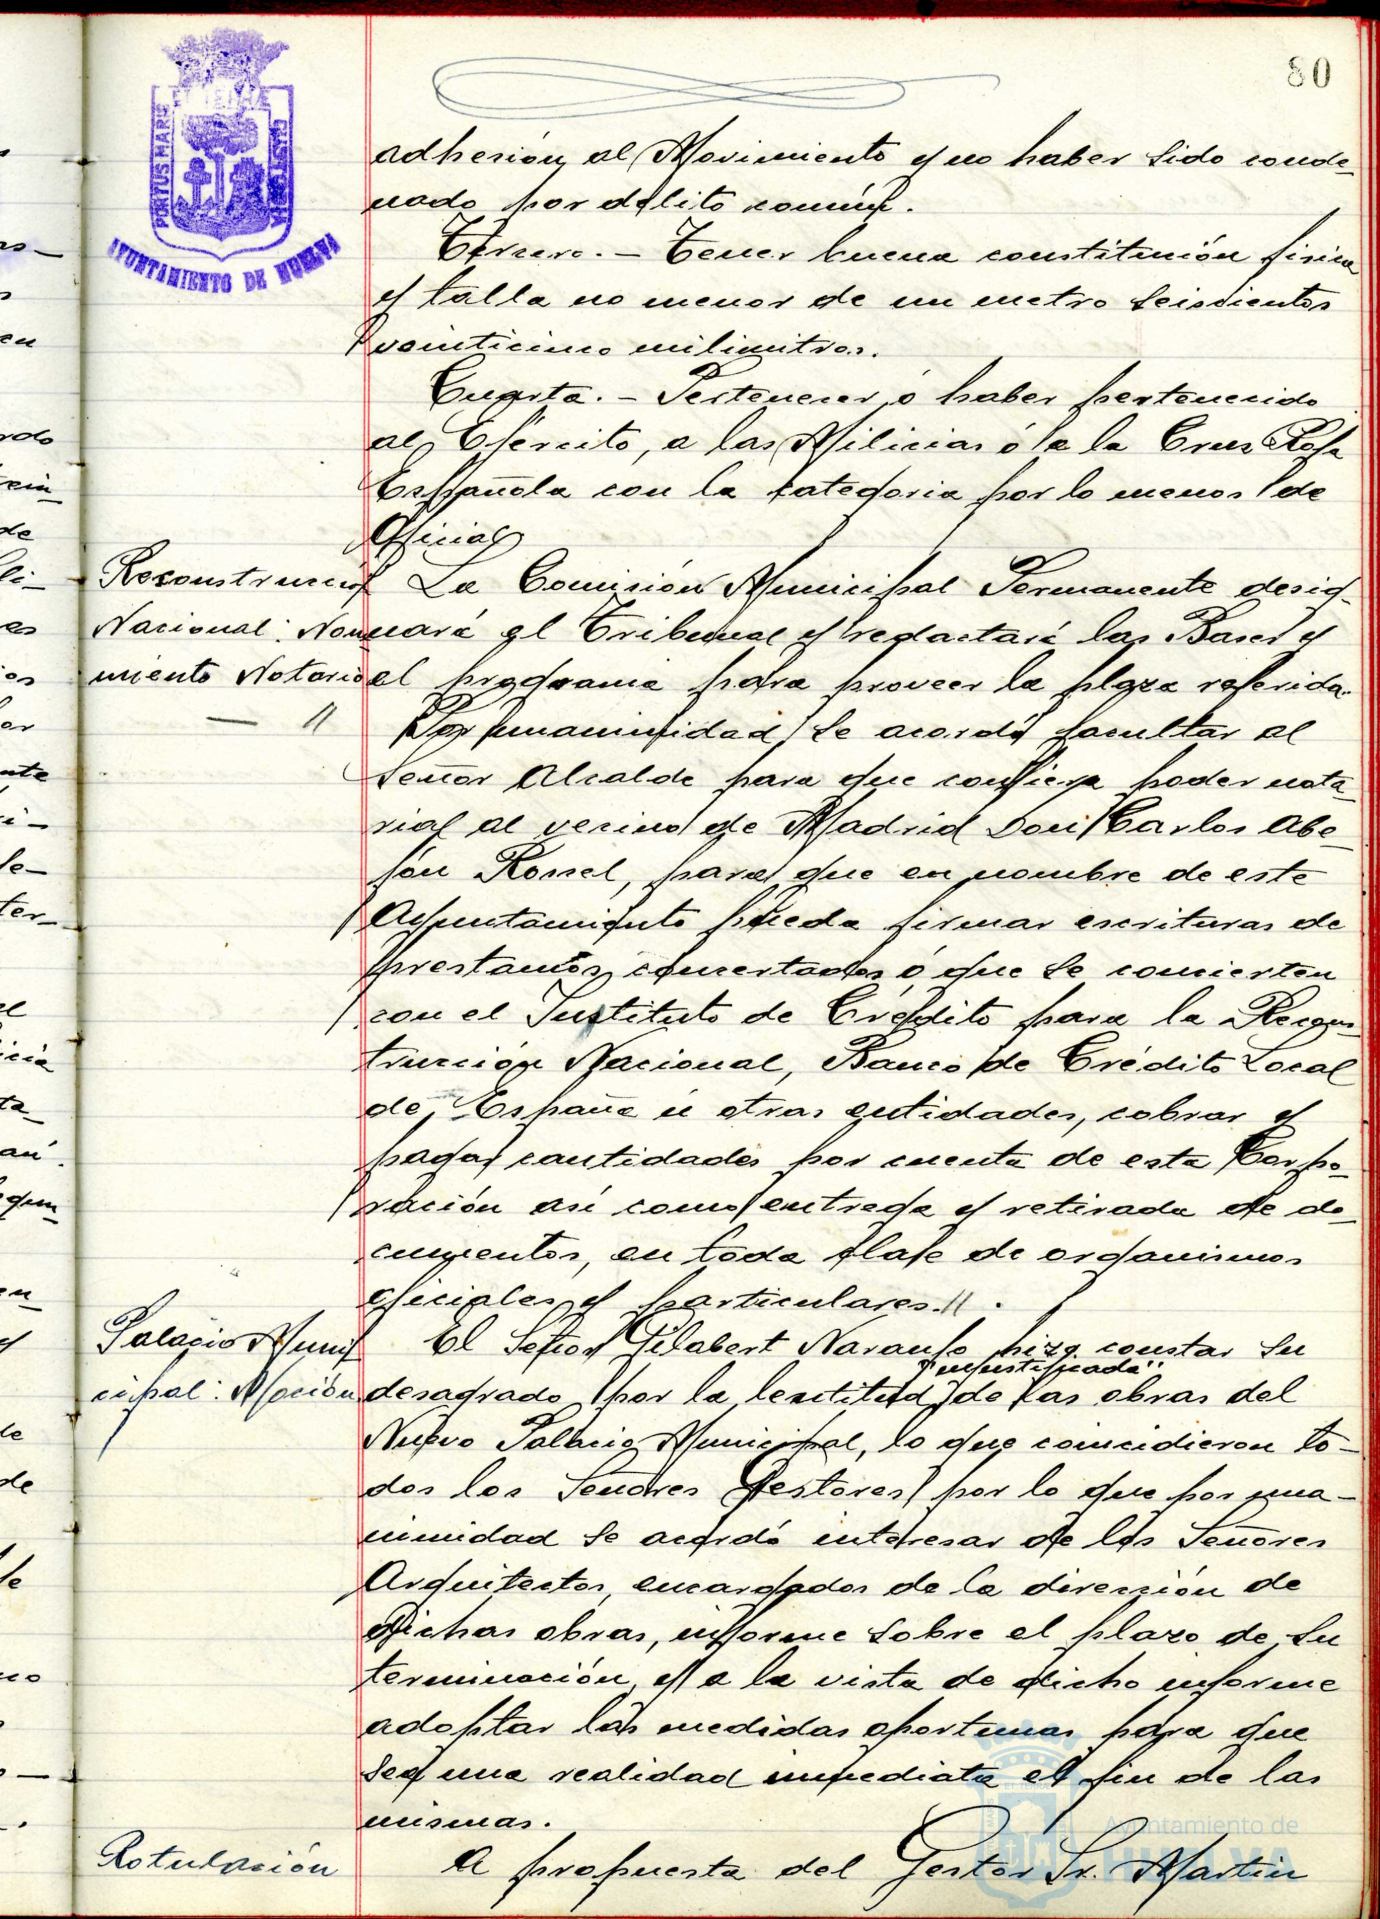 80
PORTUS MARIS ET TERRÆ CUSTODIA
AYUNTAMIENTO DE HUELVA
adhesión al Movimiento y no haber sido conde-
nado por delito común.
Tercero.- Tener buena constitución física
y talla no menor de un metro seiscientos
veinticinco milimitros.
Cuarta.- Pertenecer ó haber pertenecido
al Ejército, a las Milicias ó a la Cruz Roja
Española con la categoria por lo menos de
Oficial
La Comisión Municipal Permanente desig-
nará el Tribunal y redactará las Bases y
el programa para proveer la plaza referida.
Reconstrucción
Nacional: Nom
miento Notario
— "
Por unanimidad se acordó facultar al
Señor Alcalde para que confiera poder nota-
rial al vecino de Madrid Don Carlos Abe-
jón Rossel, para que en nombre de este
Ayuntamiento pueda firmar escrituras de
prestamos concertados ó que se concierten
con el Instituto de Crédito para la Recons-
trucción Nacional, Banco de Crédito Local
de España ú otras entidades, cobrar y
pagar cantidades por cuenta de esta Corpo-
ración así como entrega y retirada de do-
cumentos, en toda clase de organismos
oficiales y particulares.".
Palacio Muni
cipal: Moción
El Señor Gilabert Naranjo hizo constar su
"injustificada"
desagrado por la lentitud de las obras del
Nuevo Palacio Municipal, lo que coincidieron to-
dos los Señores Gestores por lo que por una-
nimidad se acordó interesar de los Señores
Arquitectos, encargados de la dirección de
dichas obras, informe sobre el plazo de su
terminación, y a la vista de dicho informe
adoptar las medidas oportunas para que
sea una realidad inmediata el fin de las
mismas.
Rotulación
A propuesta del Gestor Sr. Martin
Ayuntamiento de
HUELVA